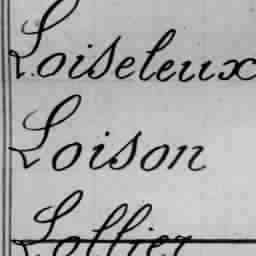 Loiseleux
Loison
Lollier